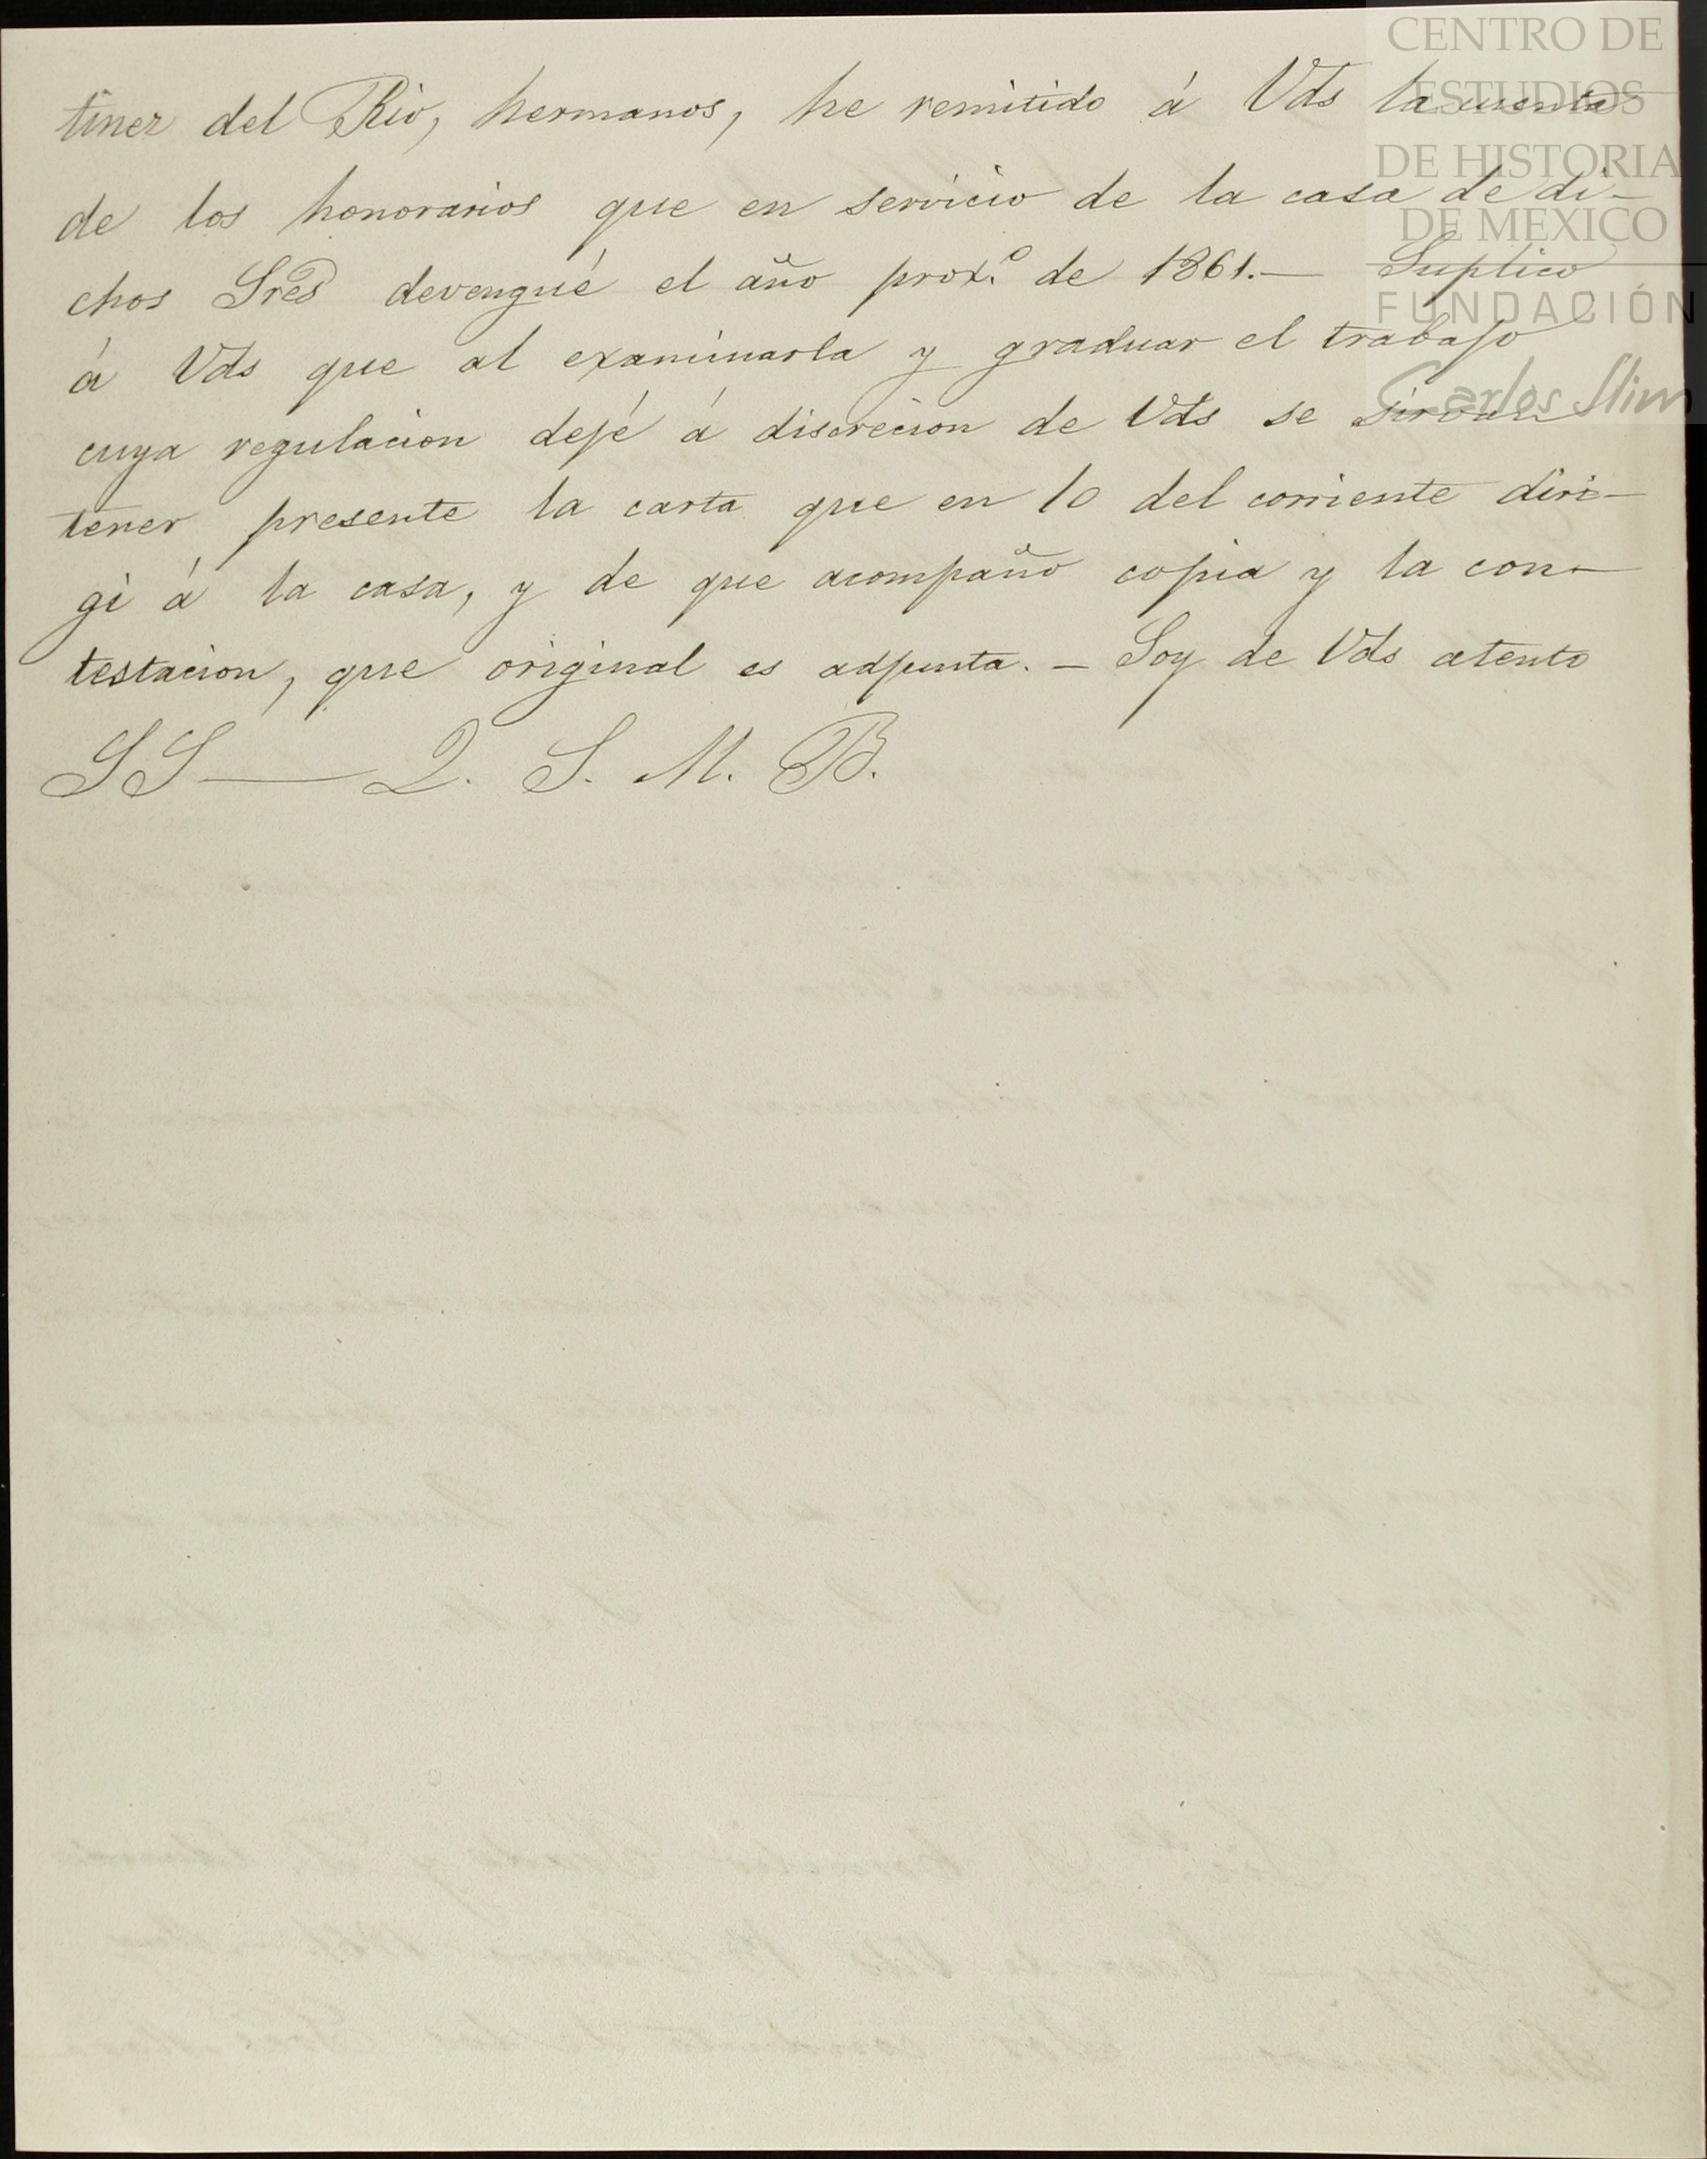 tinez del Rio, hermanos, he remitido á Vds la cuenta
de los honorarios que en servicio de la casa de di-
chos Sres devengué el año proxo. de 1861.— Suplico
á Vds que al examinarla y graduar el trabajo
cuya regulacion dejé á discrecion de Vds se sirvan
tener presente la carta que en 10 del corriente diri-
gi á la casa, y de que acompaño copia y la con-
testacion, que original es adjunta. — Soy de Vds atento
SS — Q. S. M. B.
CENTRO DE
ESTUDIOS
DE HISTORIA
DE MEXICO
FUNDACIÓN
Carlos Slim